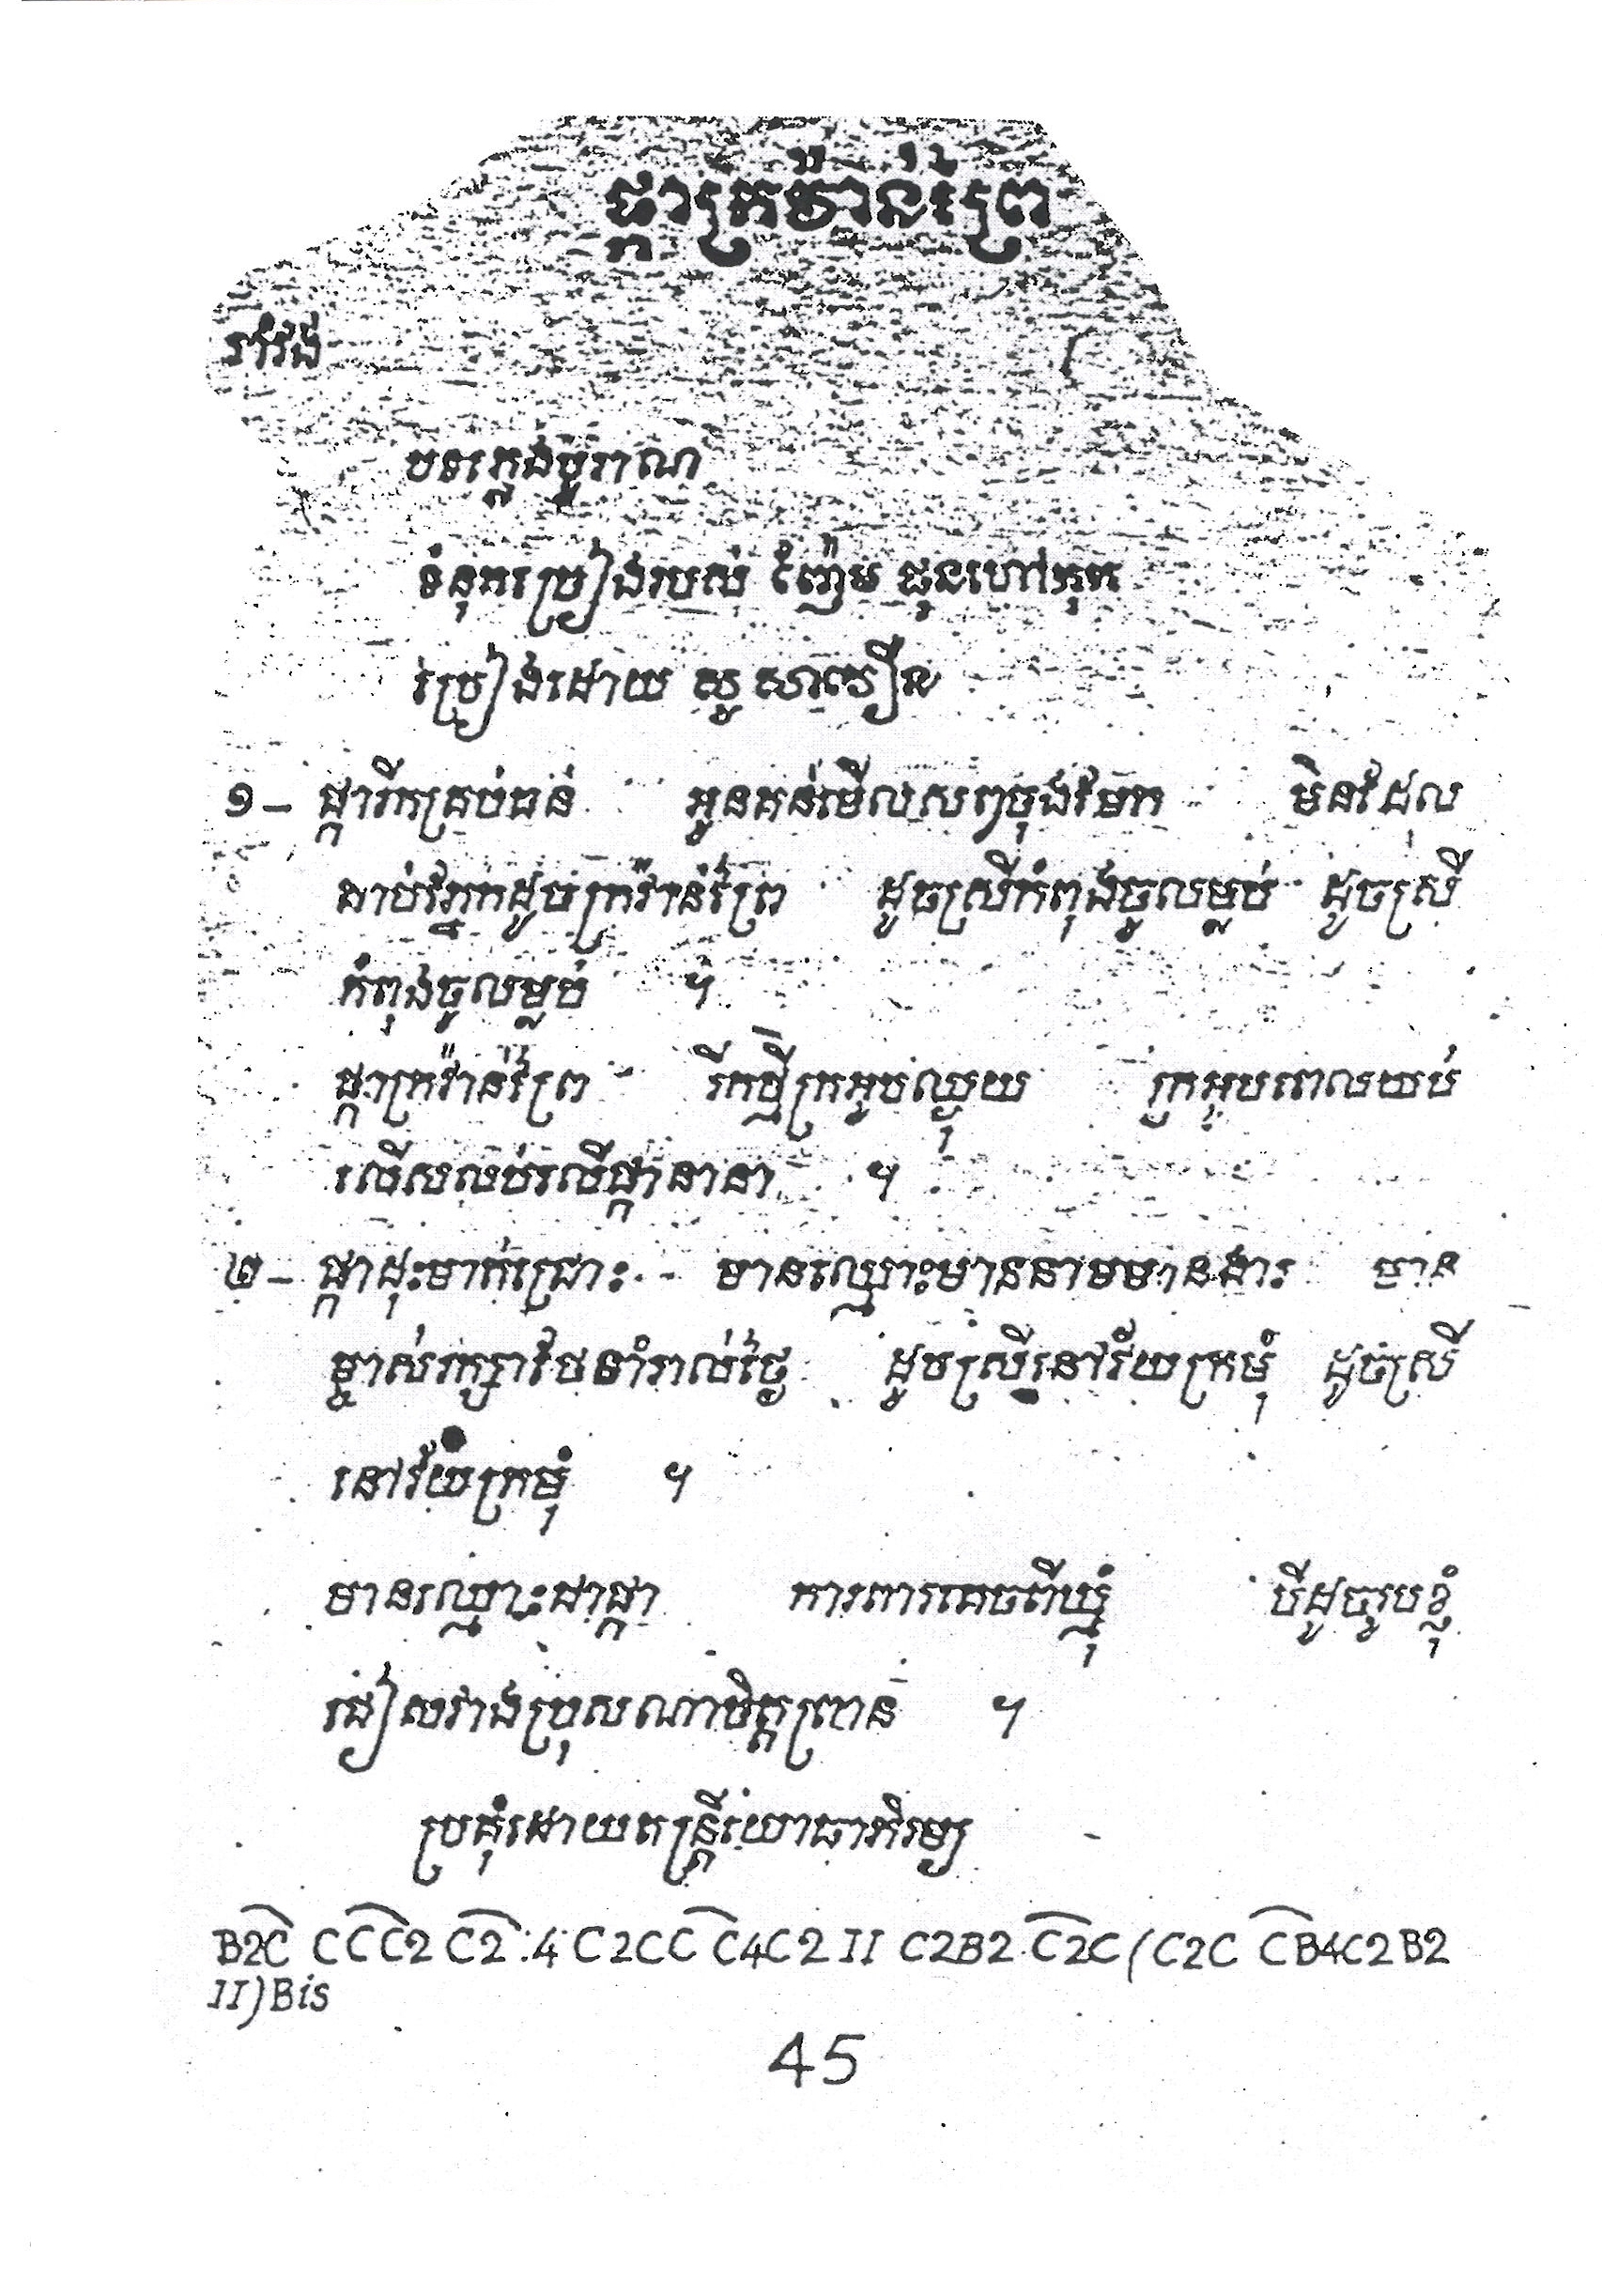 ផ្កាក្រវ៉ាន់ព្រៃ
រាំវង់
បទភ្លេងបូរាណ
ទំនុកប្រៀងរបស់ ងំញ៉ែម ជុនហៅតុក
រៀបរៀងដោយ សូ សារឿន
១ - ផ្ការីកគ្រប់ធន់ អូនគន់មើលសព្វចុងមែក មិនដែល
គាប់ភ្នែកដូចក្រវ៉ាន់ព្រៃ ដូចស្រីកំពុងចូលម្លប់ ដូចស្រី
កំពុងចូលម្លប់ ។
ផ្កាក្រវ៉ាន់ព្រៃ រីកថ្មីក្រអូបឈ្ងុយ ក្រអូបពេលយប់
លើសលប់លើផ្កានានា ។
២ - ផ្កាដុះមាត់ជ្រោះ មានឈ្មោះមាននាមមានងារ មាន
ម្ចាស់រក្សាថែទាំរាល់ថ្ងៃ ដូចស្រីនៅវ័យក្រមុំ ដូចស្រី
នៅវ័យក្រមុំ ។
មានឈ្មោះជាផ្កា ការពារគេចពីឃ្មុំ បីដូចរូបខ្ញុំ
ជៀសវាងប្រុសណាចិត្តព្រាន ។
ប្រគុំដោយតន្ត្រីយោធាភិរម្យ
B2C CCC2 C2 :4 C2CC C4C2 II C2B2 C2C (C2C CB4C2 B2
II) Bis
45